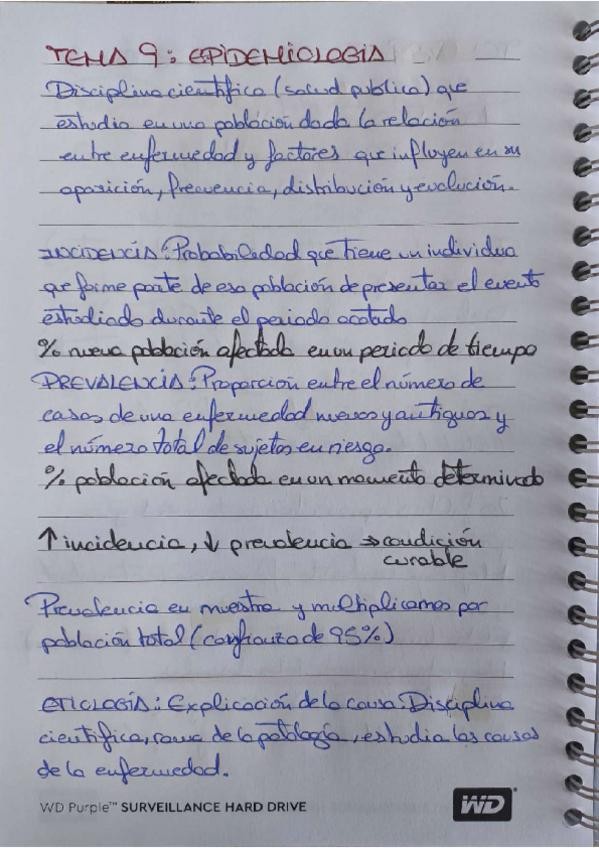 TEMA 9: EPIDEMIOLOGIA
Disciplina científica (salud publica) que
estudia en una población dada la relación
entre enfermedad y factores que influyen en su
aparición, frecuencia, distribución y evolución.
INCIDENCIA: Probabilidad que tiene un individuo
que forme parte de esa población de presentar el evento
estudiado durante el periodo acotado
% nueva población afectada en un periodo de tiempo
PREVALENCIA: Proporción entre el número de
casos de una enfermedad nuevos y antiguos y
el número total de sujetos en riesgo.
% población afectada en un momento determinado
↑ incidencia, ↓ prevalencia → condición
curable
Prevalencia en muestra y multiplicamos por
población total (confianza de 95%)
ETIOLOGÍA: Explicación de la causa. Disciplina
científica, rama de la patología, estudia las causas
de la enfermedad.
WD Purple™ SURVEILLANCE HARD DRIVE
WD